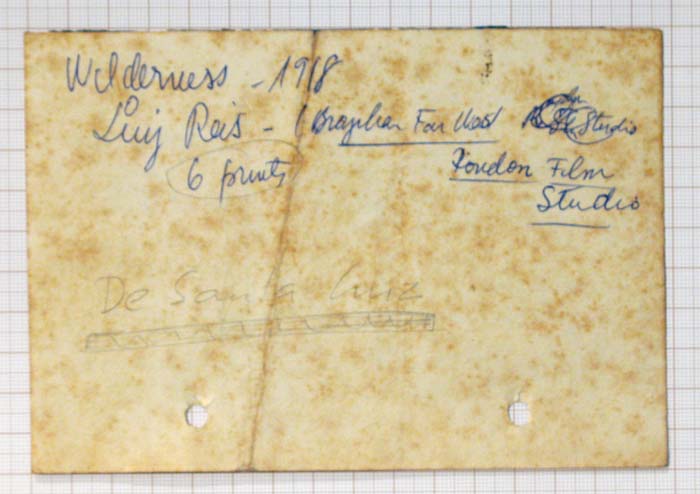 Wilderness - 1918
Luiz Reis - (Brazilian Far West Studio
6 prints
London Film
Studio
De Santa Cruz